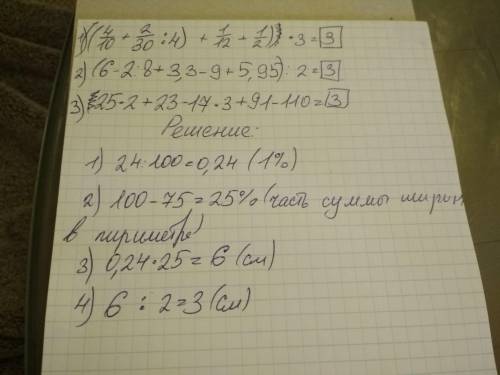 1) ((4/10 + 2/30 : 4) + 1/12 + 1/2) · 3 = 3
2) (6 - 2.8 + 3,3 - 9 + 5,95) : 2 = 3
3) 25 · 2 + 23 - 17 · 3 + 91 - 110 = 3
Решение:
1) 24:100=0,24 (1%)
2) 100-75=25% (часть суммы ширин
в пириметре)
3) 0,24·25=6 (см)
4) 6:2=3 (см)